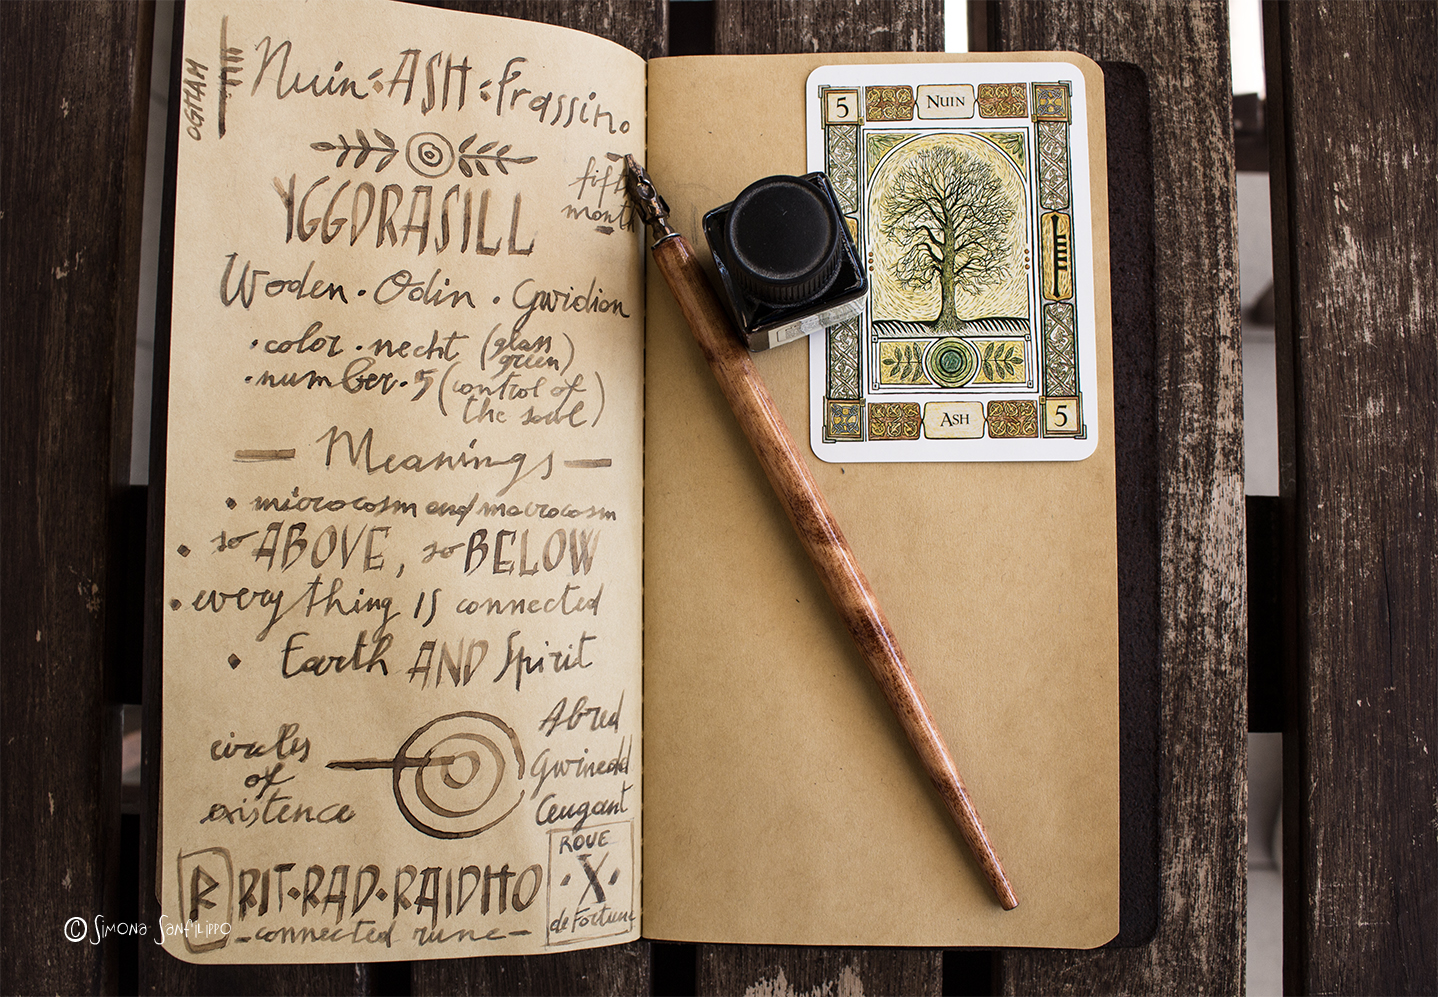 OGHAM
Nuin · ASH · Frassino
fifth
month
YGGDRASILL
Woden · Odin · Gwidion
· color · necht (glass
green)
· number · 5 (control of
the soul)
— Meanings —
• microcosm and macrocosm
• so ABOVE, so BELOW
• everything IS connected
• Earth AND Spirit
circles
of
existence
Abred
Gwinedd
Ceugant
R RIT·RAD·RAIDHO
- connected rune -
ROUE
· X ·
de Fortune
© SIMONA SANFILIPPO
5
NUIN
ASH
5